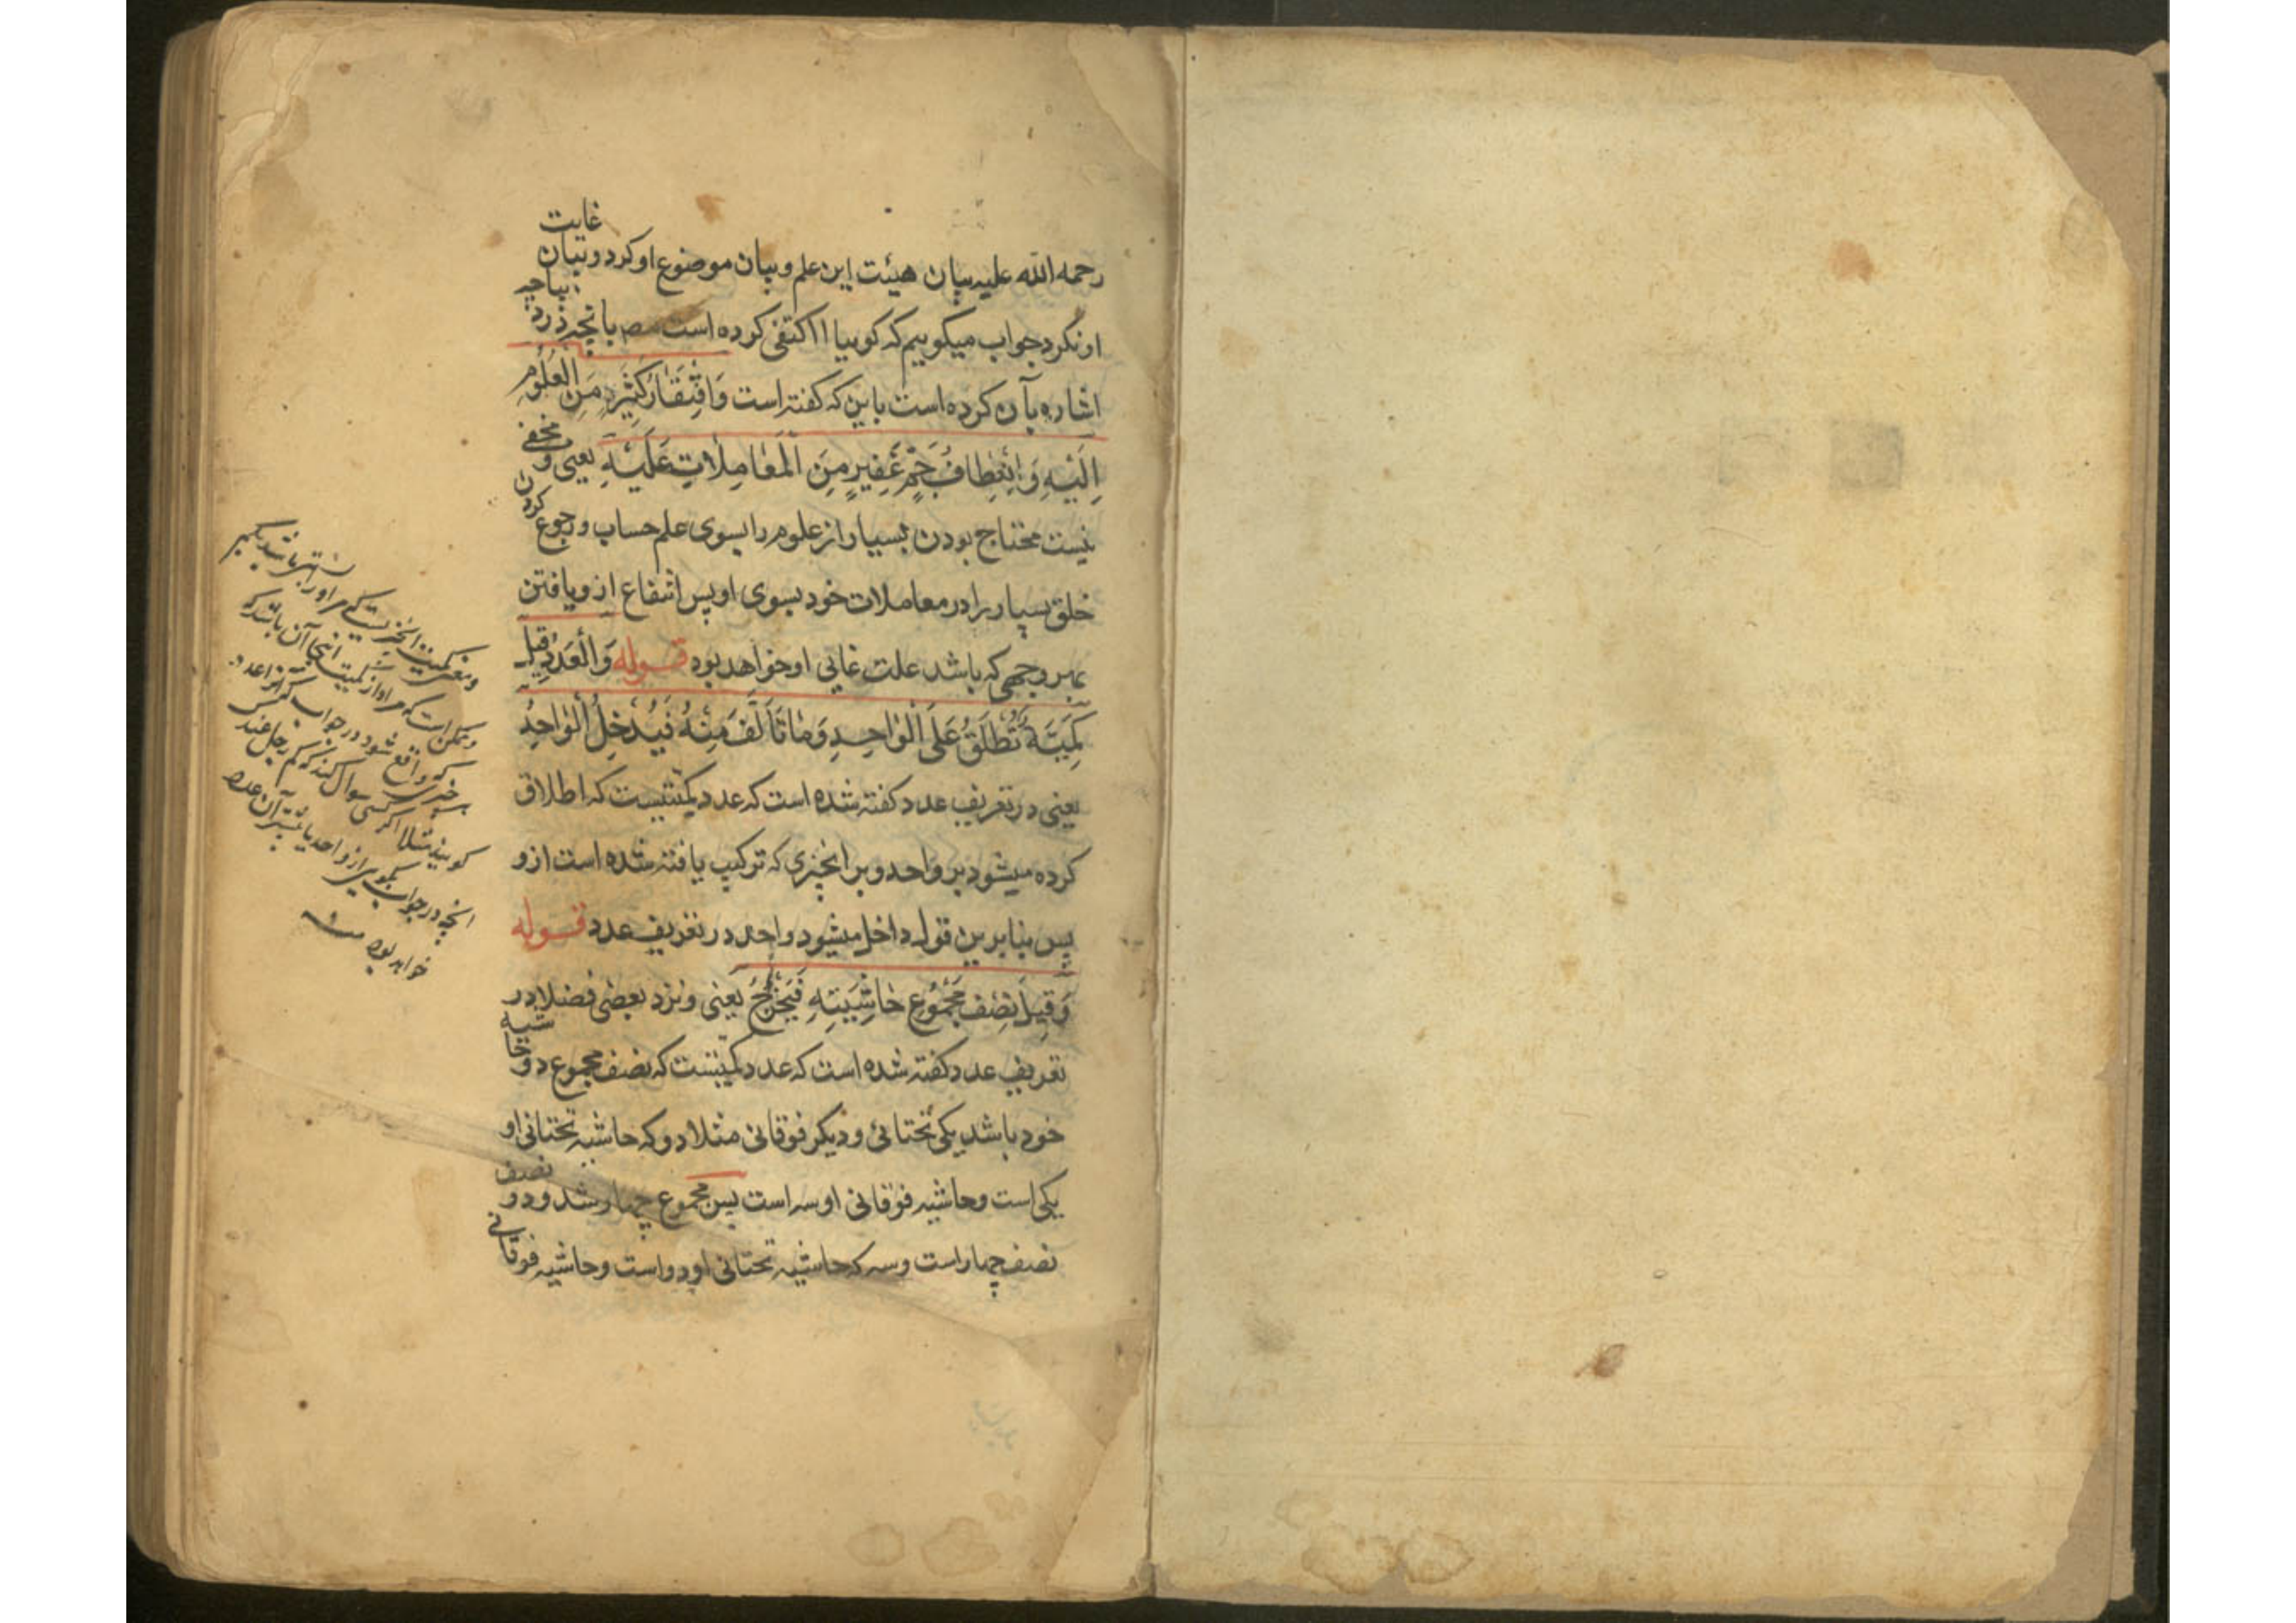 رحمه الله علیه بیان هیئت این علم و بیان موضوع او کرد و بیان غایت
او نکرد جواب میکوییم که کوییا اکتفی کرده است مصـ بانچه در دیباچه
اشاره بآن کرده است باین که کفته است وَافْتِقَارُ كَثِيرٍ مِنَ العُلُومِ
اِلَيْهِ وَ اِنْعِطَافُ جَمٍّ غَفِيرٍ مِنَ الْمُعَامِلَاتِ عَلَيْهِ یعنی و مخفی
نیست محتاج بودن بسیار از علوم را بسوی علم حساب و رجوع کردن
خلق بسیار را در معاملات خود بسوی او پس انتفاع ازو یافتن
بهر وجهی که باشد علت غایی او خواهد بود قوله وَالْعَدَدُ قِيلَ
كَمِّيَّةٌ تُطْلَقُ عَلَى الْوَاحِدِ وَمَا تَأَلَّفَ مِنْهُ فَيَدْخُلُ الْوَاحِدُ
یعنی در تعریف عدد کفته شده است که عدد کمیتیست که اطلاق
کرده میشود بر واحد و بر انچیزی که ترکیب یافته شده است ازو
پس بنابرین قول داخل میشود واحد در تعریف عدد قوله
وَقِيلَ نِصْفُ مَجْمُوعِ حَاشِيَتَيْهِ فَيَخْرُجُ یعنی و نزد بعضی فضلا در
تعریف عدد کفته شده است که عدد کمیتیست که نصف مجموع دو حاشیه
خود باشد یکی تحتانی و دیکر فوقانی مثلا دو که حاشیه تحتانی او
یکی است و حاشیه فوقانی او سه است پس مجموع چهار شد و دو نصف
نصف چهار است و سه که حاشیه تحتانی او دو است و حاشیه فوقانی
و ممکن است که مراد از کمیت اینجا آن باشد که
واقع شود در جواب کم
کویند مثلا اکر کسی سوال کند که کم رجل عندک
انچه در جواب بکویی از واحد یا آن عدد
خواهد بود منه